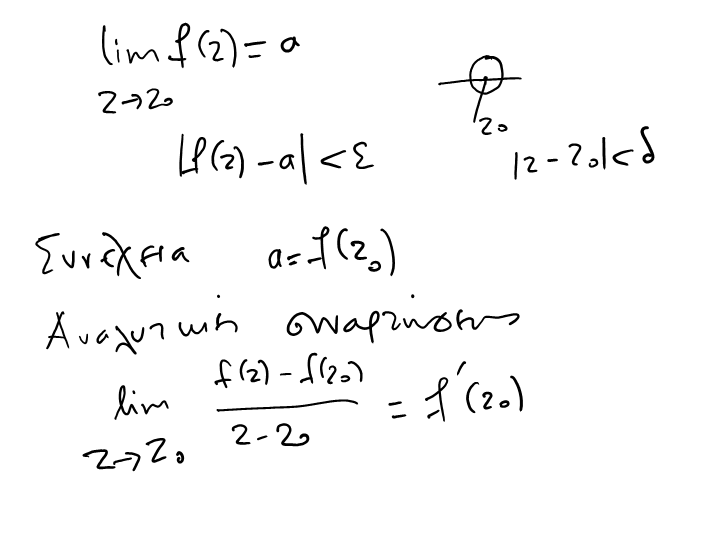 lim f(z) = a
z→z₀
z₀
|f(z) - a| < ε
|z - z₀| < δ
Συνέχεια a = f(z₀)
Αναλυτική συνάρτηση
lim f(z) - f(z₀) / z - z₀ = f'(z₀)
z→z₀